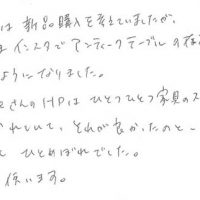 は 新品購入を考えていましたが、
インスタで アンティークテーブルの存
ようになりました。
さんのHPは ひとつひとつ家具のス
かれていて、それが良かったのと一
て ひとめぼれでした。
使います。